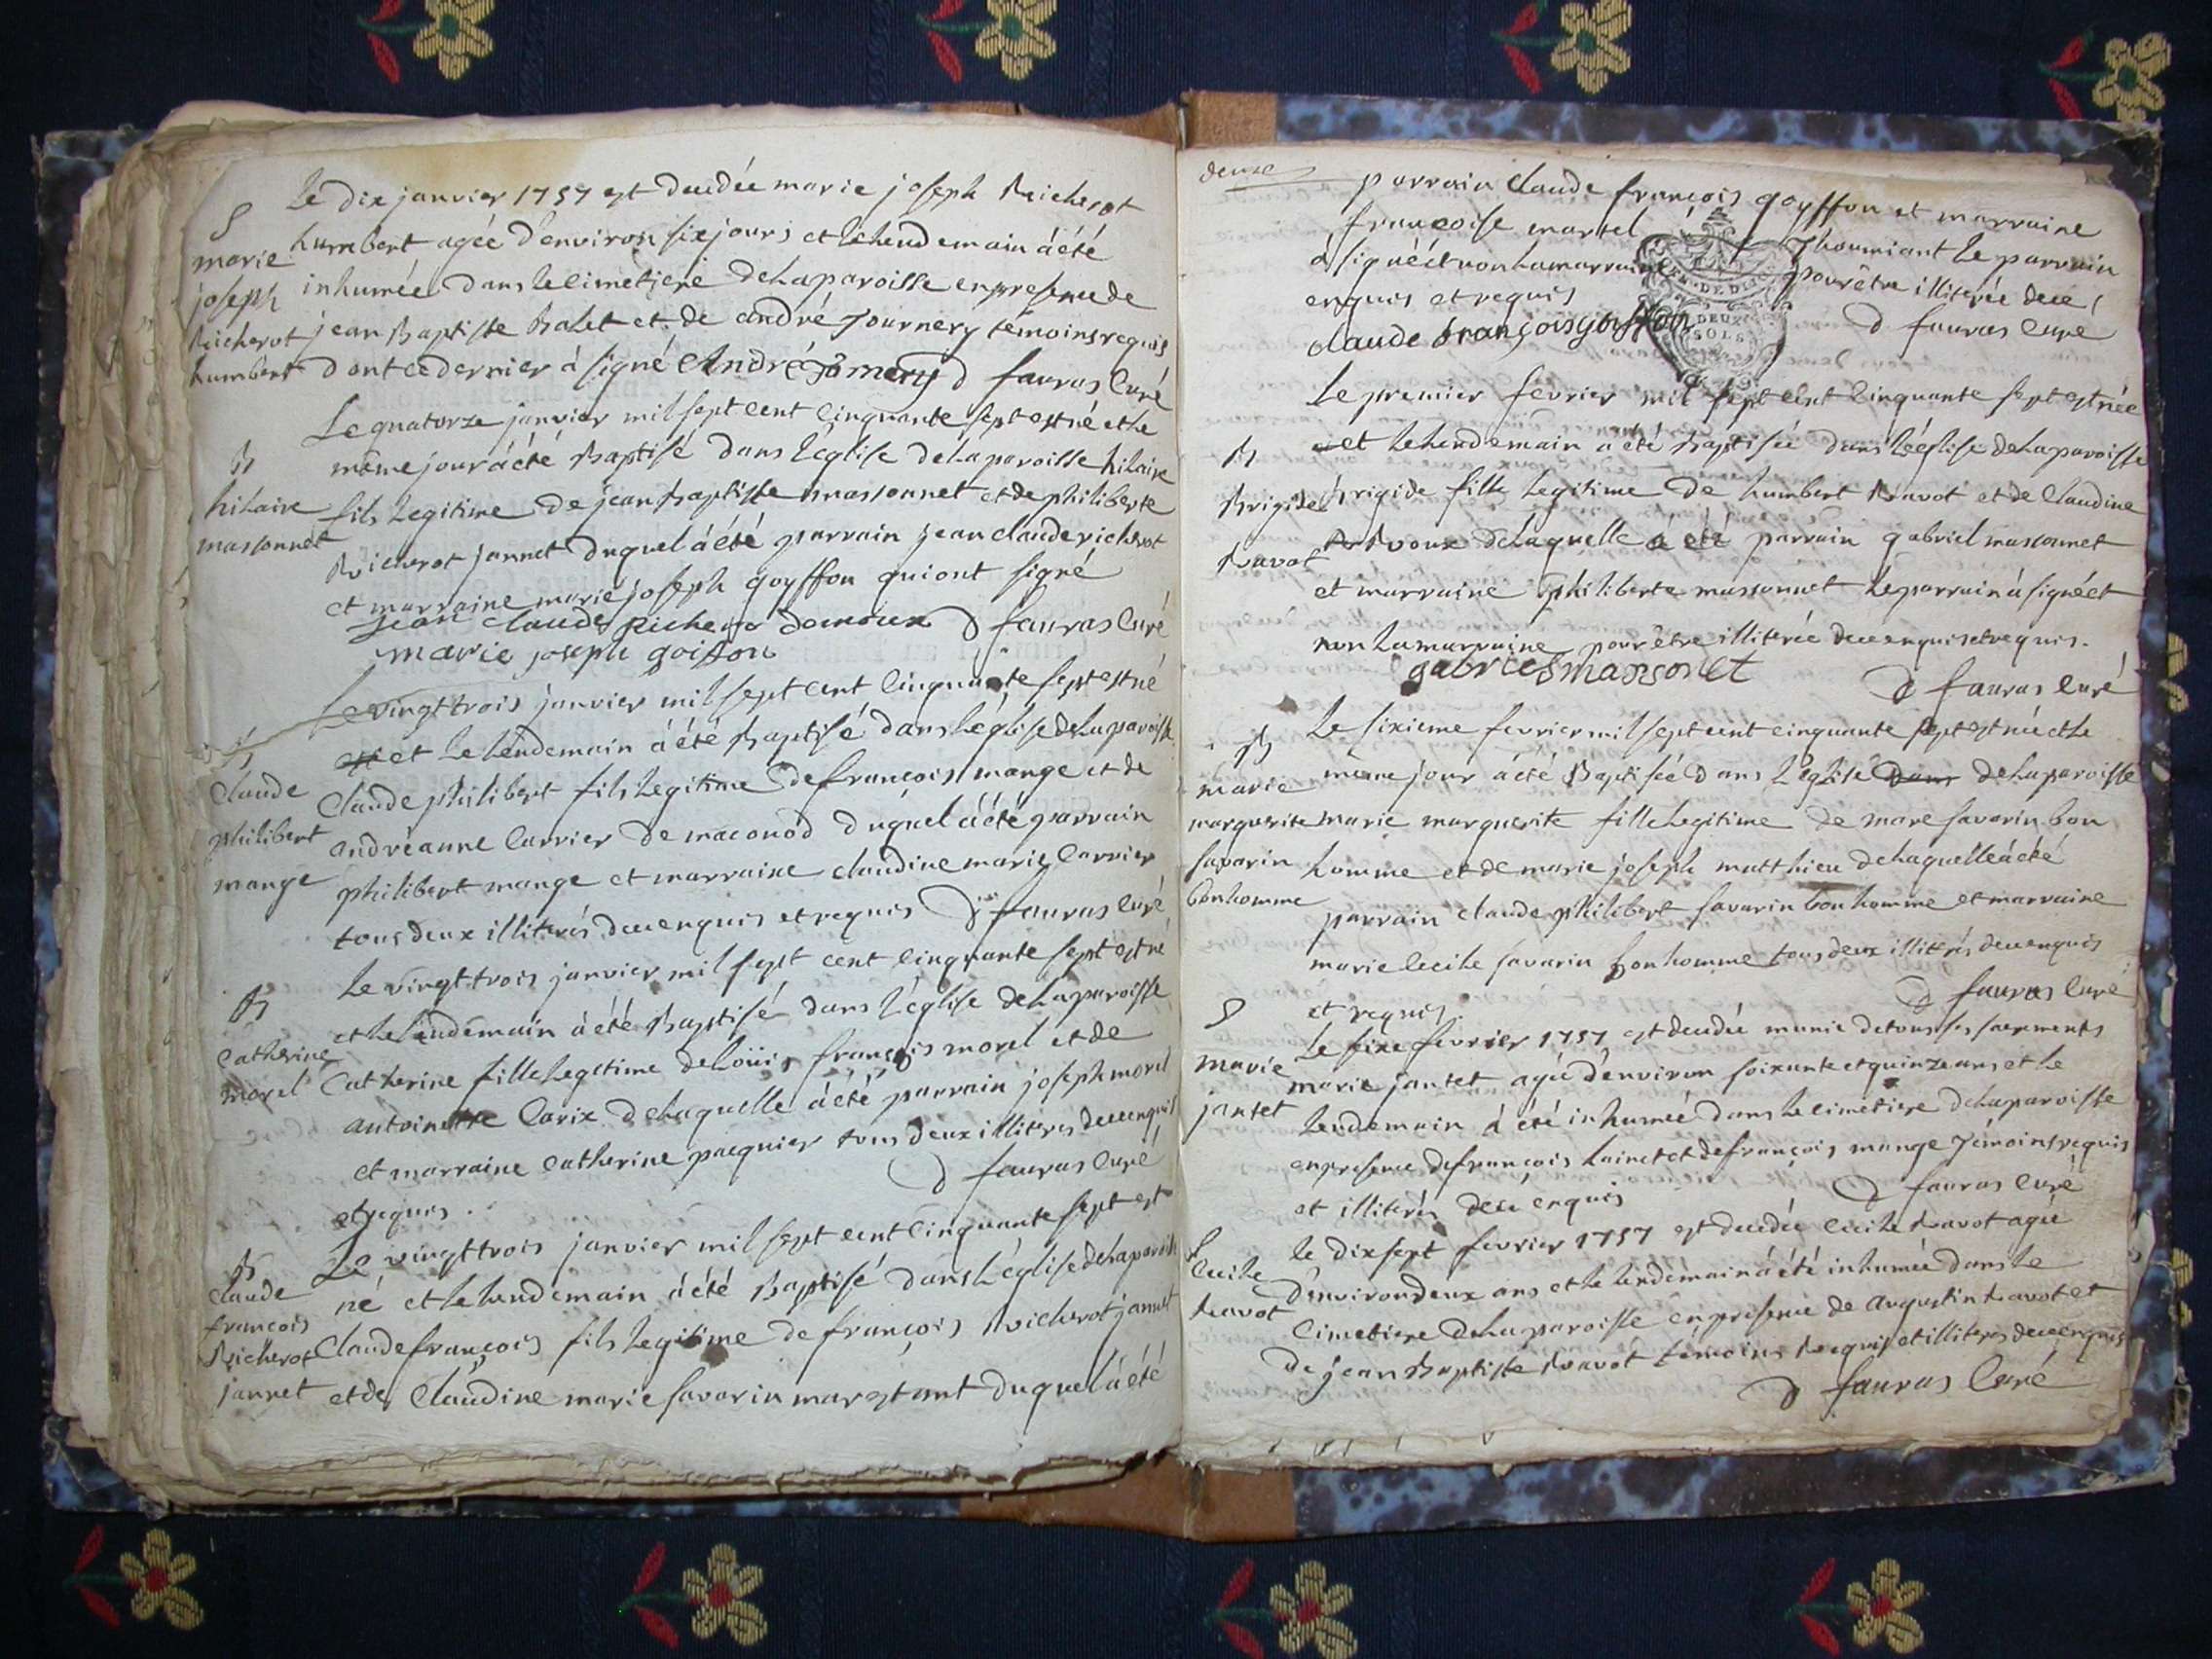 Le dix janvier 1757 est decedée marie joseph Richerot
S
marie
joseph
Richerot
humbert
humbert agée d'environ six jours et lehendemain à été
inhumée dans lecimetiere delaparoisse enpresence de
jean Baptiste Balet et de andré journery témoins requis
dont cedernier à signé André jomery D fauras Curé
Le quatorze janvier mil sept cent cinquante sept est né et le
B
hilaire
massonnet
même jour àété Baptisé dans l'église delaparoisse hilaire
fils legitime de jean Baptiste massonnet et de philiberte
Richerot jannet duquel àété parrain jean claude richerot
et marraine marie joseph goyffon qui ont signé
jean claude Richero D fauras Curé
marie joseph goifon
Le vingt trois janvier mil sept cent cinquante sept est né
B
Claude
philibert
mange
et le lendemain àété Baptisé dans l'église delaparoisse
Claude philibert fils legitime de françois mange et de
andréanne Carrier de maconod duquel àété parrain
philibert mange et marraine claudine marie Carrier
tous deux illiterés dece enquis et requis D fauras Curé
Le vingt trois janvier mil sept cent cinquante sept est né
B
Catherine
morel
et le lendemain àété Baptisé dans l'église delaparoisse
Catherine fille legitime de Loüis françois morel et de
antoinette Carix delaquelle àété parrain joseph morel
et marraine Catherine pacquier tous deux illiteres dece enquis
et requis. D fauras Curé
Le vingt trois janvier mil sept cent cinquante sept est
B
Claude
françois
Richerot
jannet
né et le lendemain àété Baptisé dans l'église delaparoisse
Claude françois fils legitime de françois Richerot jannet
et de Claudine marie savarin duquel àété
deuxe
parrain Claude françois goyffon et marraine
françoise martel le parrain
à signé et non la marraine pour être illiterée dece
enquis et requis
DEUX
SOLS
claude françois goiffon D fauras Curé
Le premier fevrier mil sept cent cinquante sept est née
B
Brigide
Ravot
et lehendemain a été Baptisée dans l'église delaparoisse
Brigide fille legitime de humbert Ravot et de Claudine
delaquelle à été parrain gabriel massonnet
et marraine philiberte massonnet le parrain à signé et
non lamarraine pour être illiterée dece enquis et requis.
gabriel mansonet
D fauras Curé
Le sixieme fevrier mil sept cent cinquante sept est née et le
B
marie
marguerite
savarin
bonhomme
même jour àété Baptisée dans l'église dans delaparoisse
marie marguerite fille legitime de marc savarin bon
homme et de marie joseph matthieu delaquelle àété
parrain claude philibert savarin bonhomme et marraine
marie Cecile savarin bonhomme tous deux illiterés dece enquis
et requis. D fauras Curé
S
marie
jantet
Le seixe fevrier 1757 est decedée munie de tous ses sacrements
marie jantet agée d'environ soixante et quinze ans et le
lendemain à été inhumée dans le cimetiere delaparoisse
enpresence de françois hainet et de françois mange témoins requis
et illiterés dece enquis D fauras Curé
S
Cecile
Ravot
le dix sept fevrier 1757 est decedée Cecile Ravot agée
d'environ deux ans et le lendemain àété inhumée dans le
Cimetiere delaparoisse enpresence de augustin Ravot et
de jean Baptiste Ravot témoins requis et illiteres dece enquis
D fauras Curé